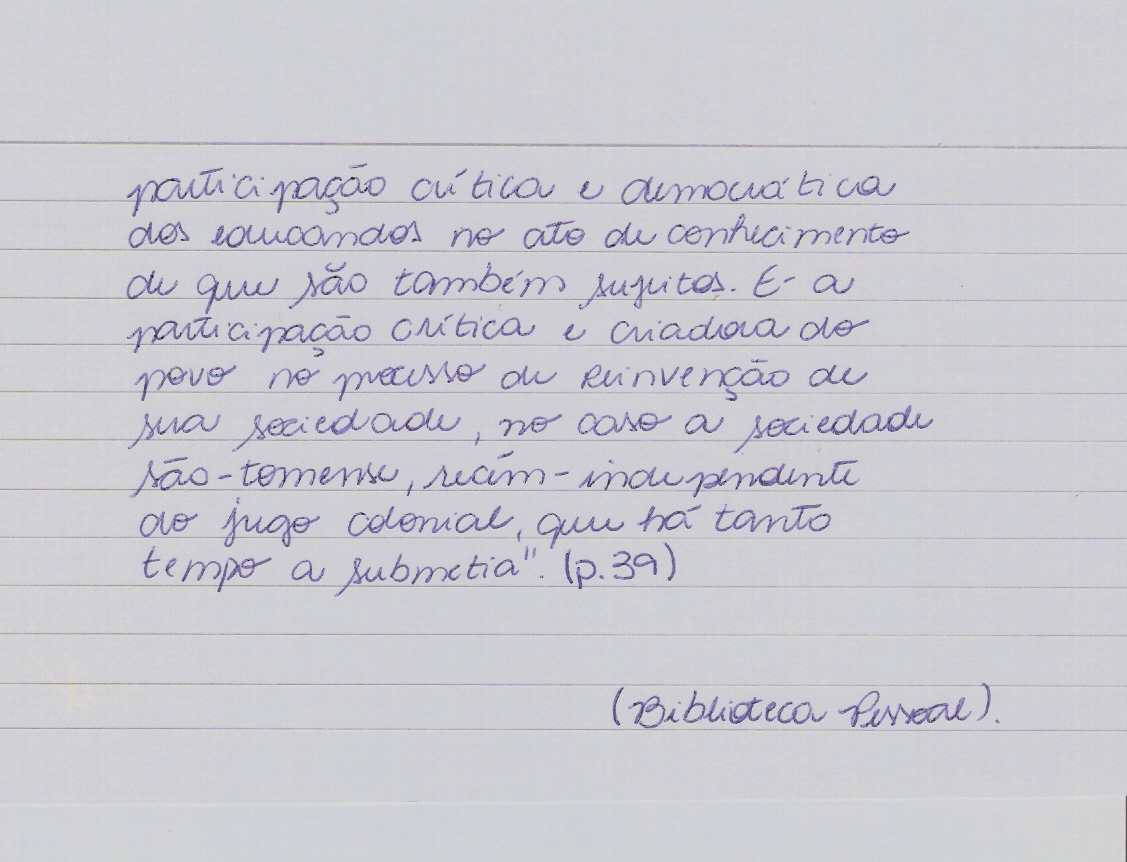 participação crítica e democrática
dos educandos no ato de conhecimento
de que são também sujeitos. É a
participação crítica e criadora do
povo no processo de reinvenção de
sua sociedade, no caso a sociedade
são-tomense, recém-independente
do jugo colonial, que há tanto
tempo a submetia". (p.39)
(Biblioteca Pessoal).